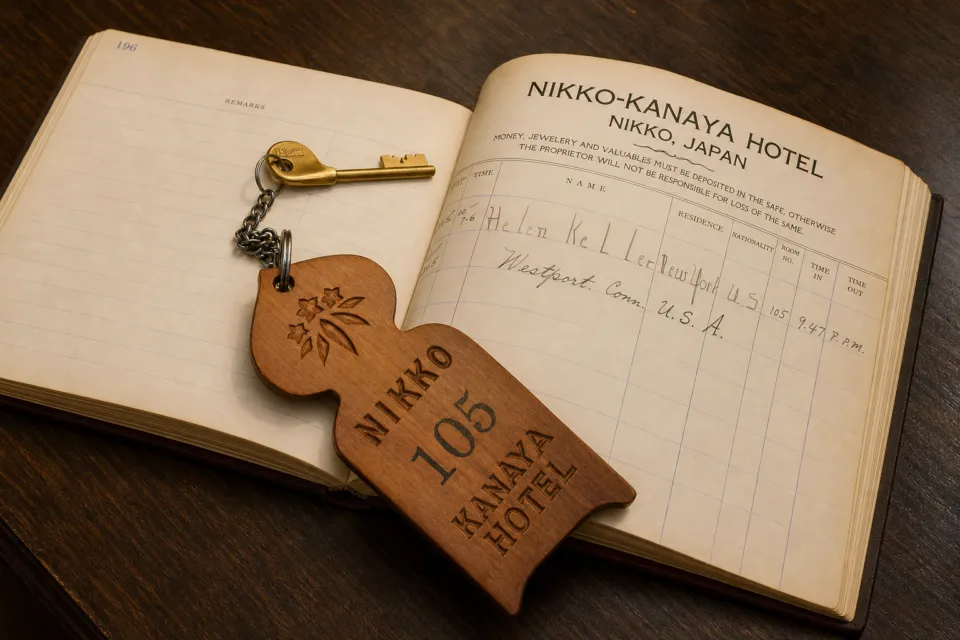 196
REMARKS
NIKKO-KANAYA HOTEL
NIKKO, JAPAN
MONEY, JEWELERY AND VALUABLES MUST BE DEPOSITED IN THE SAFE, OTHERWISE
THE PROPRIETOR WILL NOT BE RESPONSIBLE FOR LOSS OF THE SAME.
TIME NAME RESIDENCE NATIONALITY ROOM NO. TIME IN TIME OUT
Helen Keller New York U.S 105 9.47 P.P.M.
Westport. Conn. U.S.A.
NIKKO
105
KANAYA
HOTEL